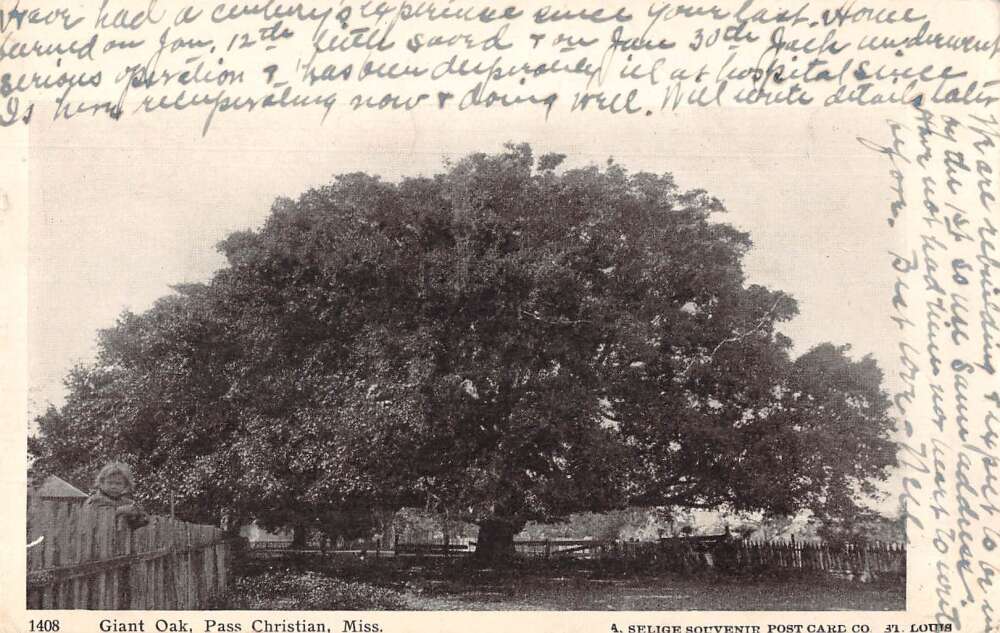 Have had a century's experience since your last. Home
burned on Jan. 12th little saved & on Jan 30th Jack underwent
serious operation & has been desperately ill at hospital since
Is home recuperating now & doing well. Will write details later
We are rebuilding & expect to be in
by the 1st so use same address.
Have not had time nor heart to write
before. Best love - Nell
1408 Giant Oak, Pass Christian, Miss.
A. SELIGE SOUVENIR POST CARD CO. ST. LOUIS